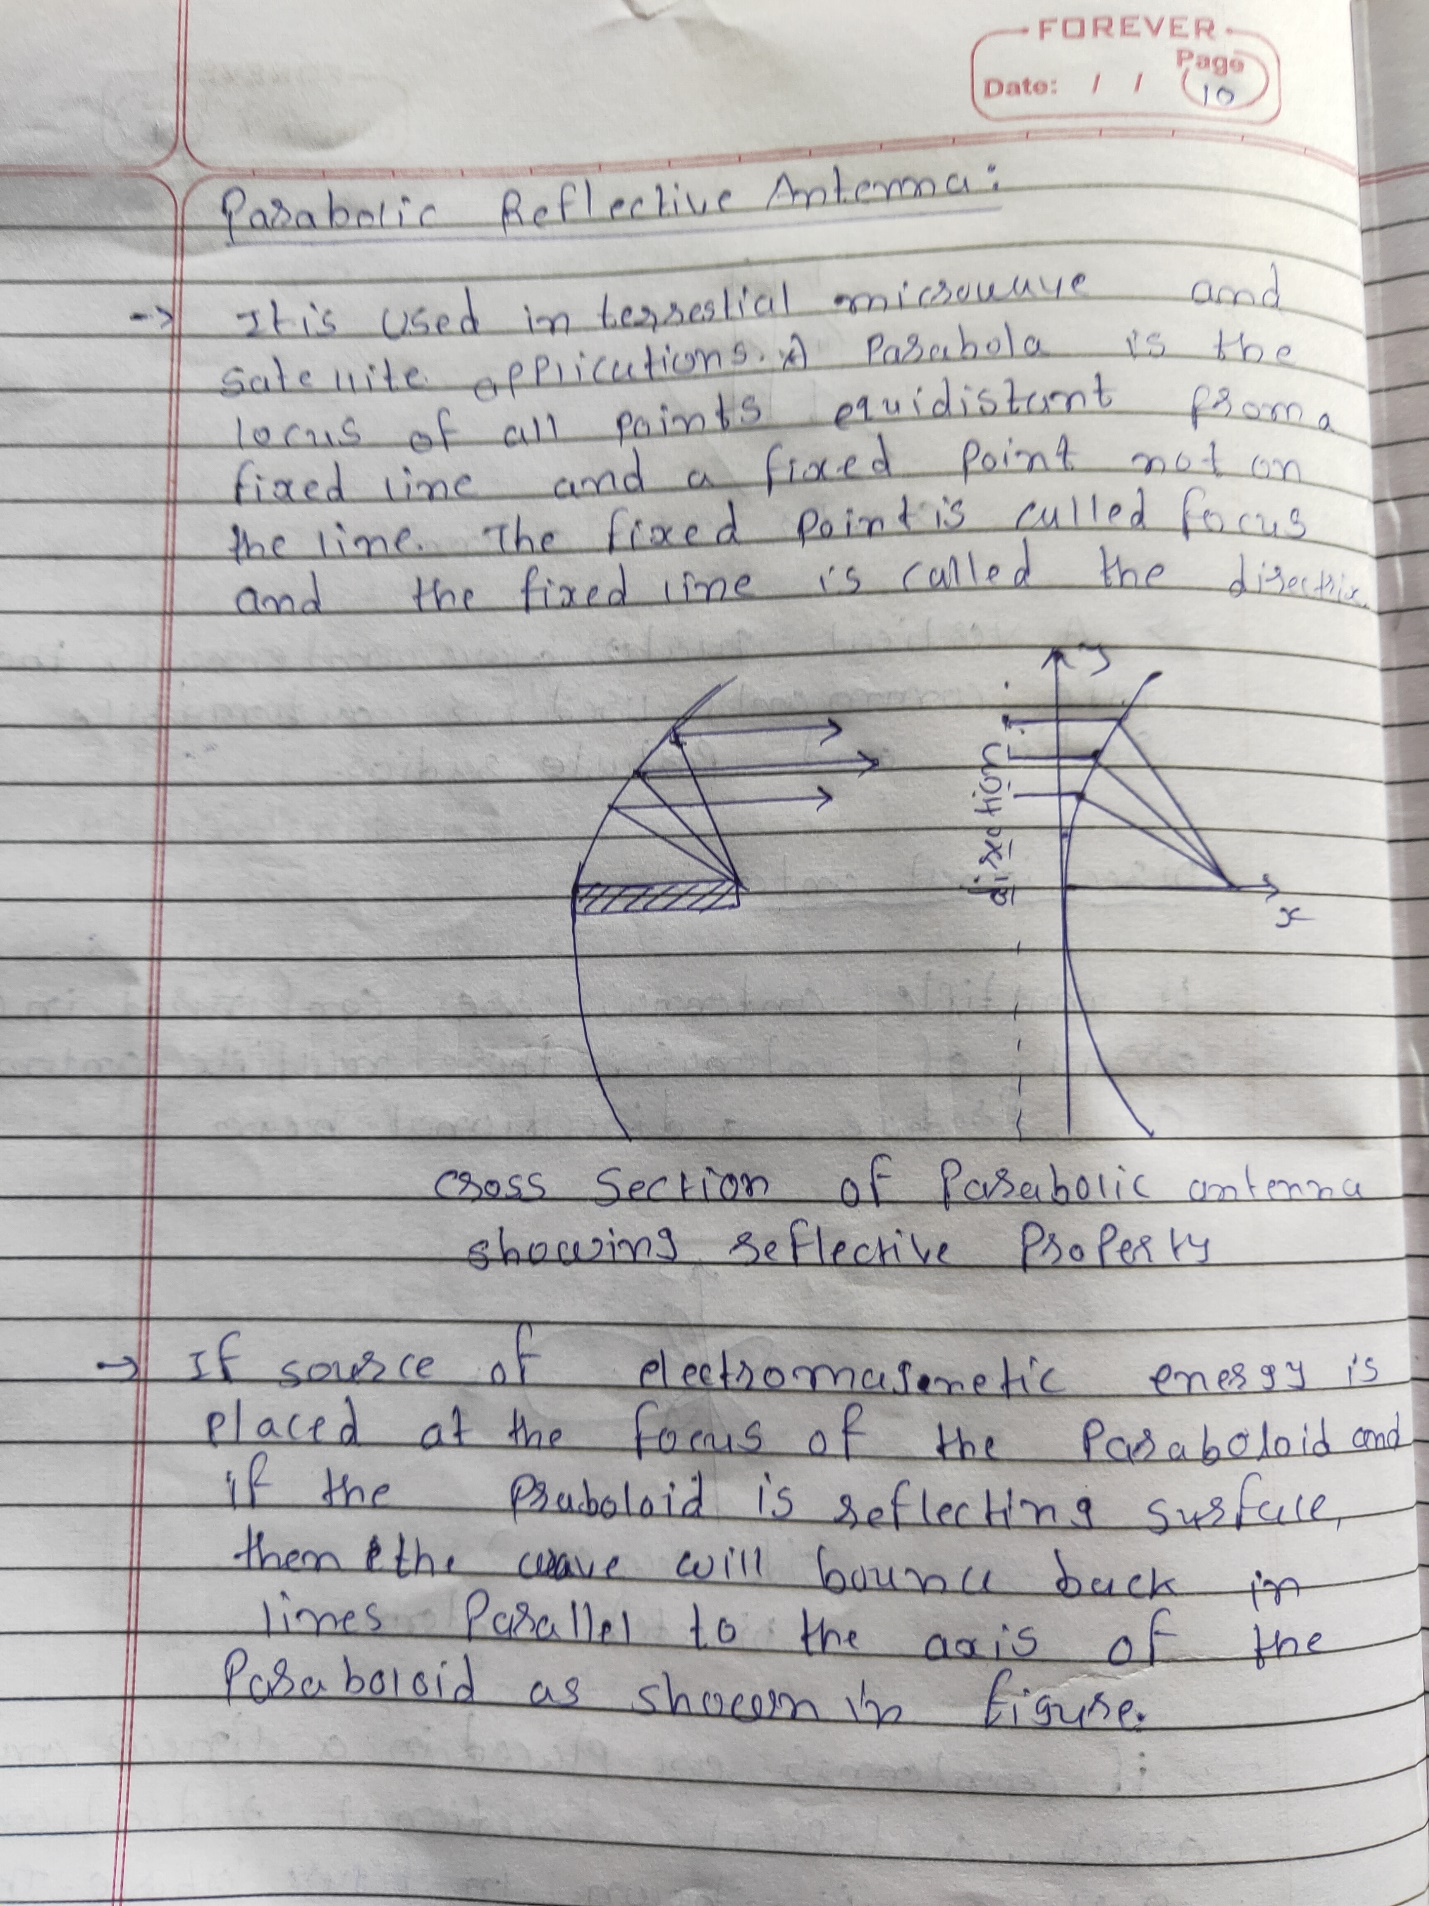 FOREVER
Page
Date: / / 10
Parabolic Reflective Antenna:
-> It is used in terrestial microwave and
satellite applications. A Parabola is the
locus of all points equidistant from a
fixed line and a fixed point not on
the line. The fixed point is called focus
and the fixed line is called the directrix.
y
direction
x
cross section of Parabolic antenna
showing reflective Property
-> If source of electromagenetic energy is
placed at the focus of the Paraboloid and
if the Praboloid is reflecting surface,
then the wave will bounce back in
lines Parallel to the axis of the
Paraboloid as shown in figure.